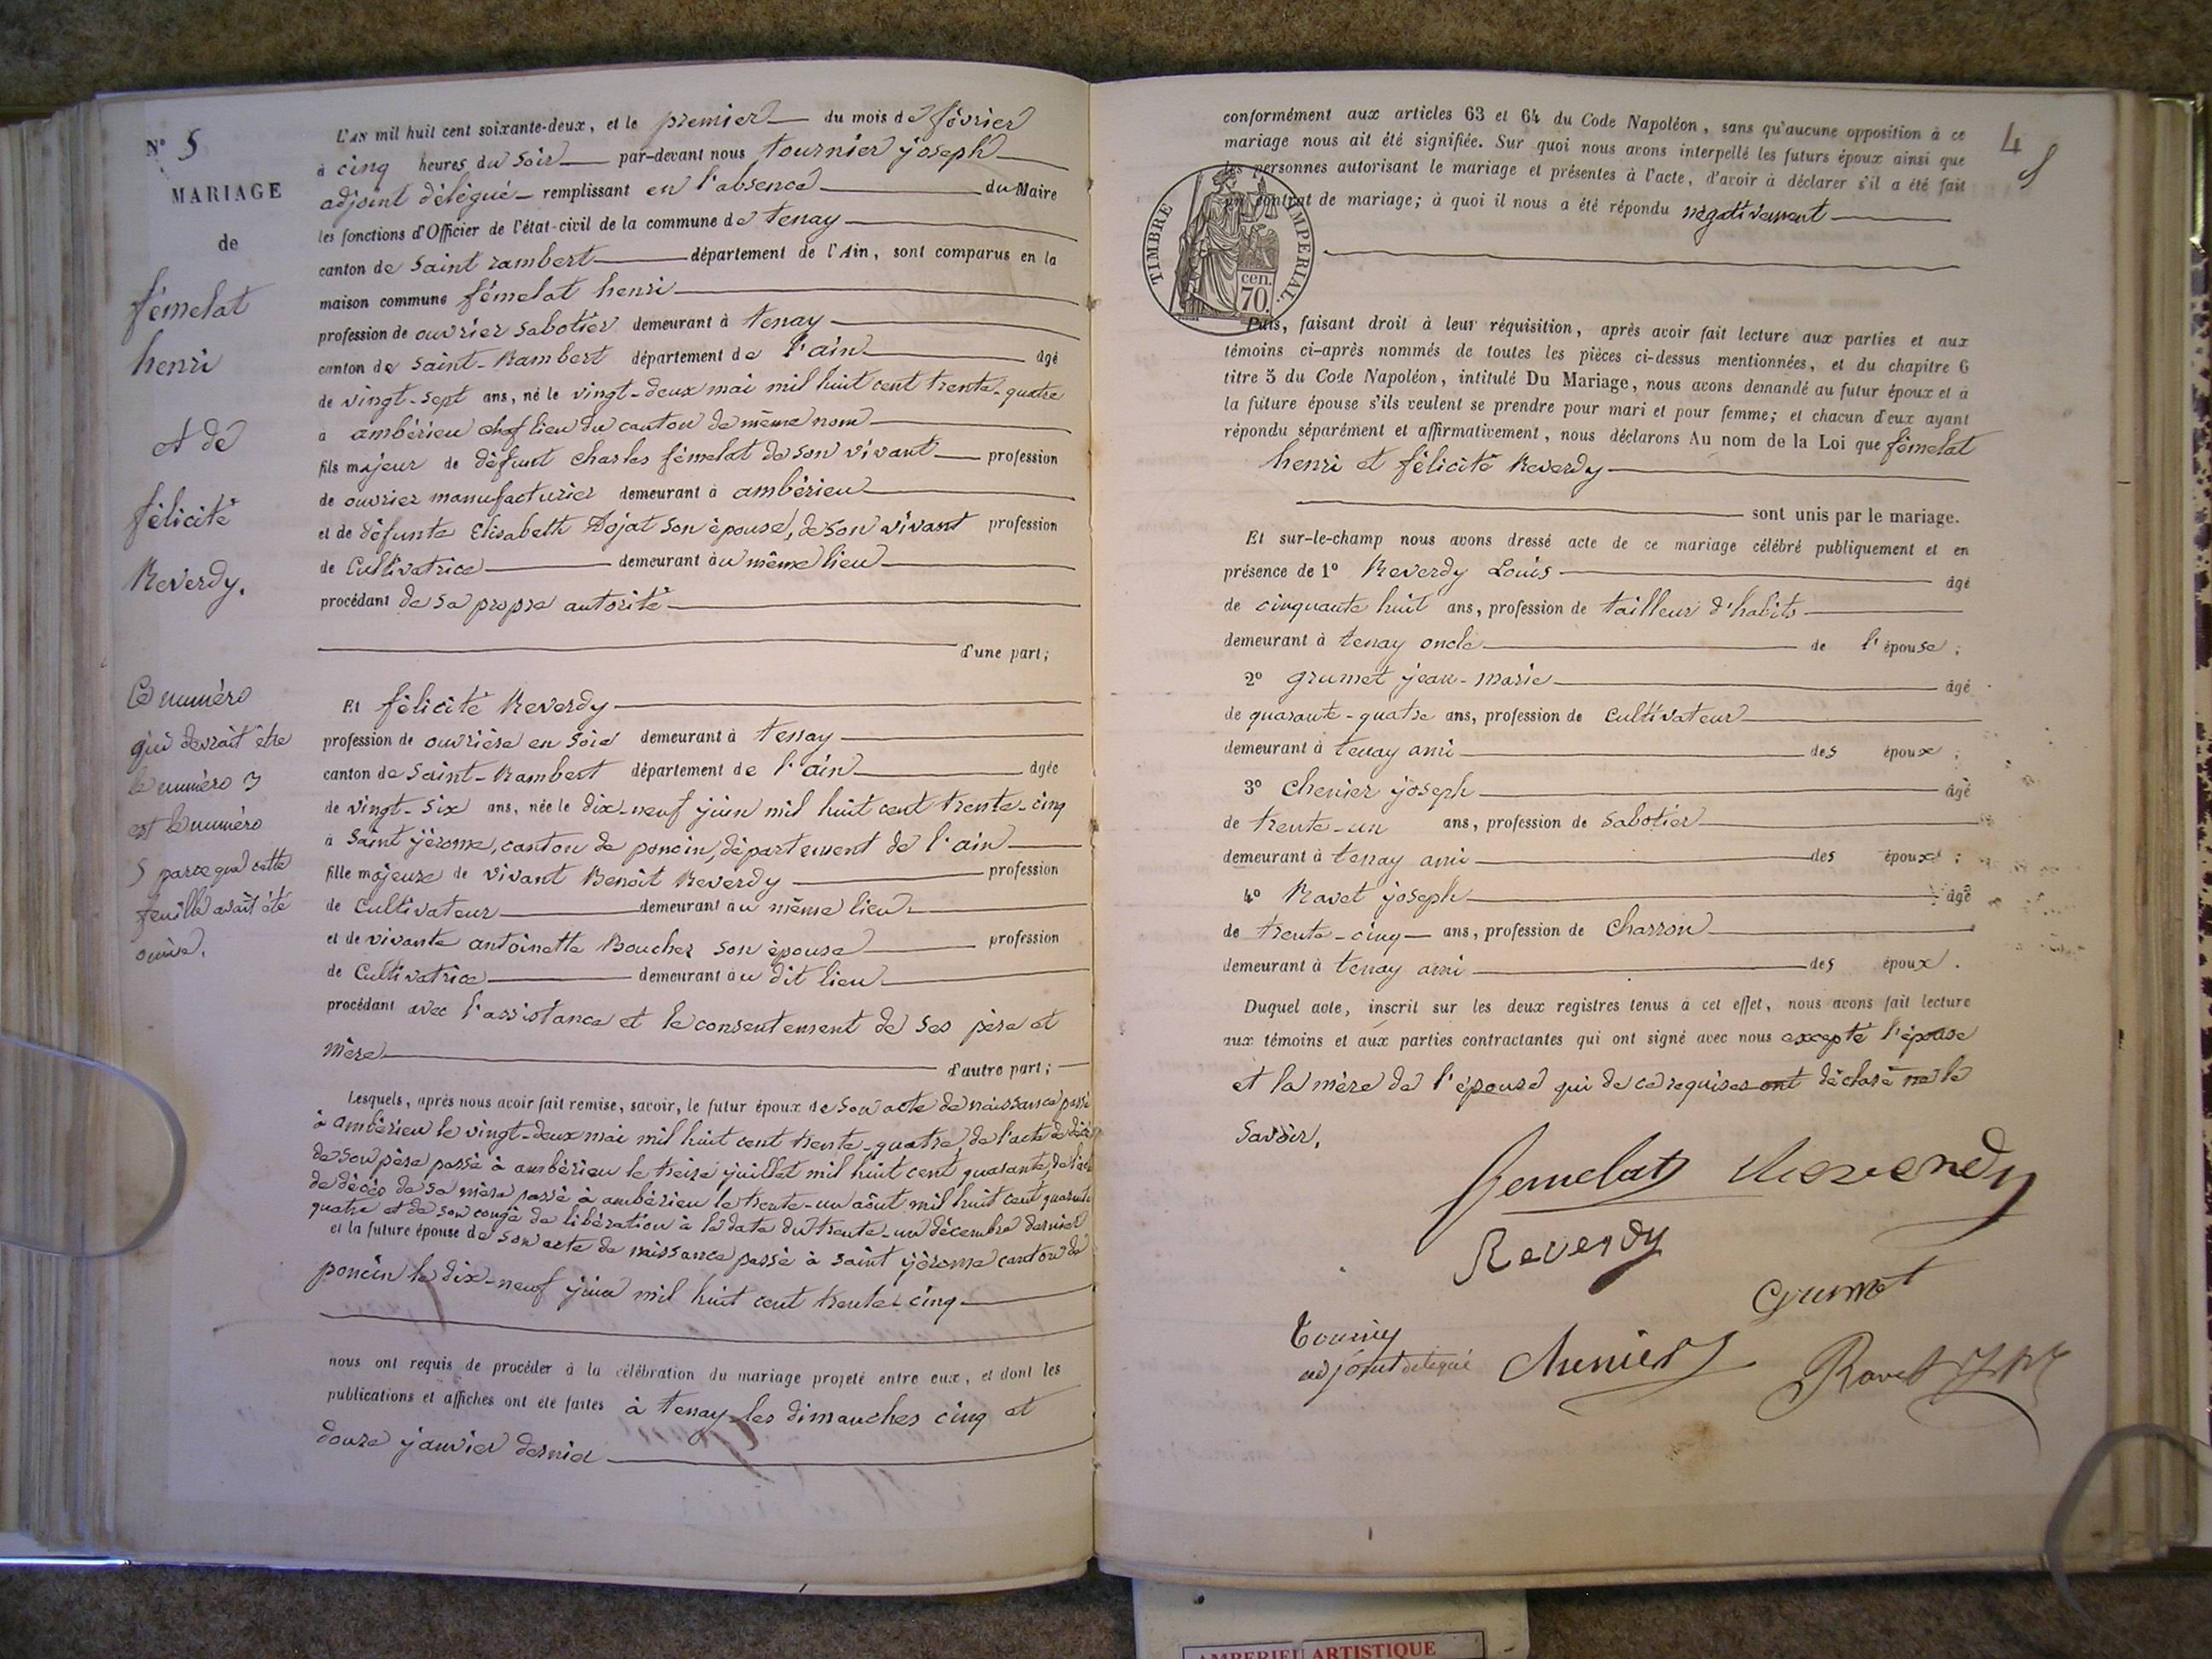 N° 5
MARIAGE
de
fémelat
henri
et de
félicité
Reverdy.
Ce numéro
qui devrait être
le numéro 3
est le numéro
5 parce que cette
feuille avait été
omise.
L'AN mil huit cent soixante-deux, et le premier du mois de février
à cinq heures du soir par-devant nous tournier joseph
adjoint délégué remplissant en l'absence du Maire
les fonctions d'Officier de l'état-civil de la commune de tenay
canton de Saint rambert département de l'Ain, sont comparus en la
maison commune fémelat henri
profession de ouvrier sabotier demeurant à tenay
canton de saint-Rambert département de l'ain âgé
de vingt-sept ans, né le vingt-deux mai mil huit cent trente-quatre
à ambérieu chef lieu du canton de même nom
fils majeur de défunt charles fémelat de son vivant profession
de ouvrier manufacturier demeurant à ambérieu
et de défunte Elisabeth Dojat son épouse, de son vivant profession
de Cultivatrice demeurant au même lieu
procédant de sa propre autorité
d'une part;
Et félicité Reverdy
profession de ouvrière en soie demeurant à tenay
canton de Saint-Rambert département de l'ain âgée
de vingt-six ans, née le dix-neuf juin mil huit cent trente-cinq
à Saint jérome, canton de poncin, département de l'ain
fille majeure de vivant Benoît Reverdy profession
de Cultivateur demeurant au même lieu
et de vivante antoinette Boucher son épouse profession
de Cultivatrice demeurant au dit lieu
procédant avec l'assistance et le consentement de ses père et
mère d'autre part;
Lesquels, après nous avoir fait remise, savoir, le futur époux de son acte de naissance passé
à ambérieu le vingt-deux mai mil huit cent trente-quatre, de l'acte de décès
de son père passé à ambérieu le treize juillet mil huit cent quarante, de l'acte
de décès de sa mère passé à ambérieu le trente-un août mil huit cent quarante
quatre et de son congé de libération à la date du trente-un décembre dernier
et la future épouse de son acte de naissance passé à saint jérome canton de
poncin le dix-neuf juin mil huit cent trente-cinq
nous ont requis de procéder à la célébration du mariage projeté entre eux, et dont les
publications et affiches ont été faites à tenay les dimanches cinq et
douze janvier dernier
4
5
conformément aux articles 63 et 64 du Code Napoléon, sans qu'aucune opposition à ce
mariage nous ait été signifiée. Sur quoi nous avons interpellé les futurs époux ainsi que
les personnes autorisant le mariage et présentes à l'acte, d'avoir à déclarer s'il a été fait
un contrat de mariage; à quoi il nous a été répondu négativement
TIMBRE IMPERIAL.
cen.
70.
Puis, faisant droit à leur réquisition, après avoir fait lecture aux parties et aux
témoins ci-après nommés de toutes les pièces ci-dessus mentionnées, et du chapitre 6
titre 5 du Code Napoléon, intitulé Du Mariage, nous avons demandé au futur époux et à
la future épouse s'ils veulent se prendre pour mari et pour femme; et chacun d'eux ayant
répondu séparément et affirmativement, nous déclarons Au nom de la Loi que fémelat
henri et félicité Reverdy
sont unis par le mariage.
Et sur-le-champ nous avons dressé acte de ce mariage célébré publiquement et en
présence de 1° Reverdy Louis âgé
de cinquante huit ans, profession de tailleur d'habits
demeurant à tenay oncle de l'épouse;
2° grumet jean-marie âgé
de quarante-quatre ans, profession de Cultivateur
demeurant à tenay ami des époux;
3° Chenier joseph âgé
de trente-un ans, profession de sabotier
demeurant à tenay ami des époux;
4° Ravet joseph âgé
de trente-cinq ans, profession de Charron
demeurant à tenay ami des époux.
Duquel acte, inscrit sur les deux registres tenus à cet effet, nous avons fait lecture
aux témoins et aux parties contractantes qui ont signé avec nous excepté l'épouse
et la mère de l'épouse qui de ce requises ont déclaré ne le
savoir.
femelat Reverdy
Reverdy
Grumet
adjoint délégué Chenier J Ravet
AMBERIEU ARTISTIQUE